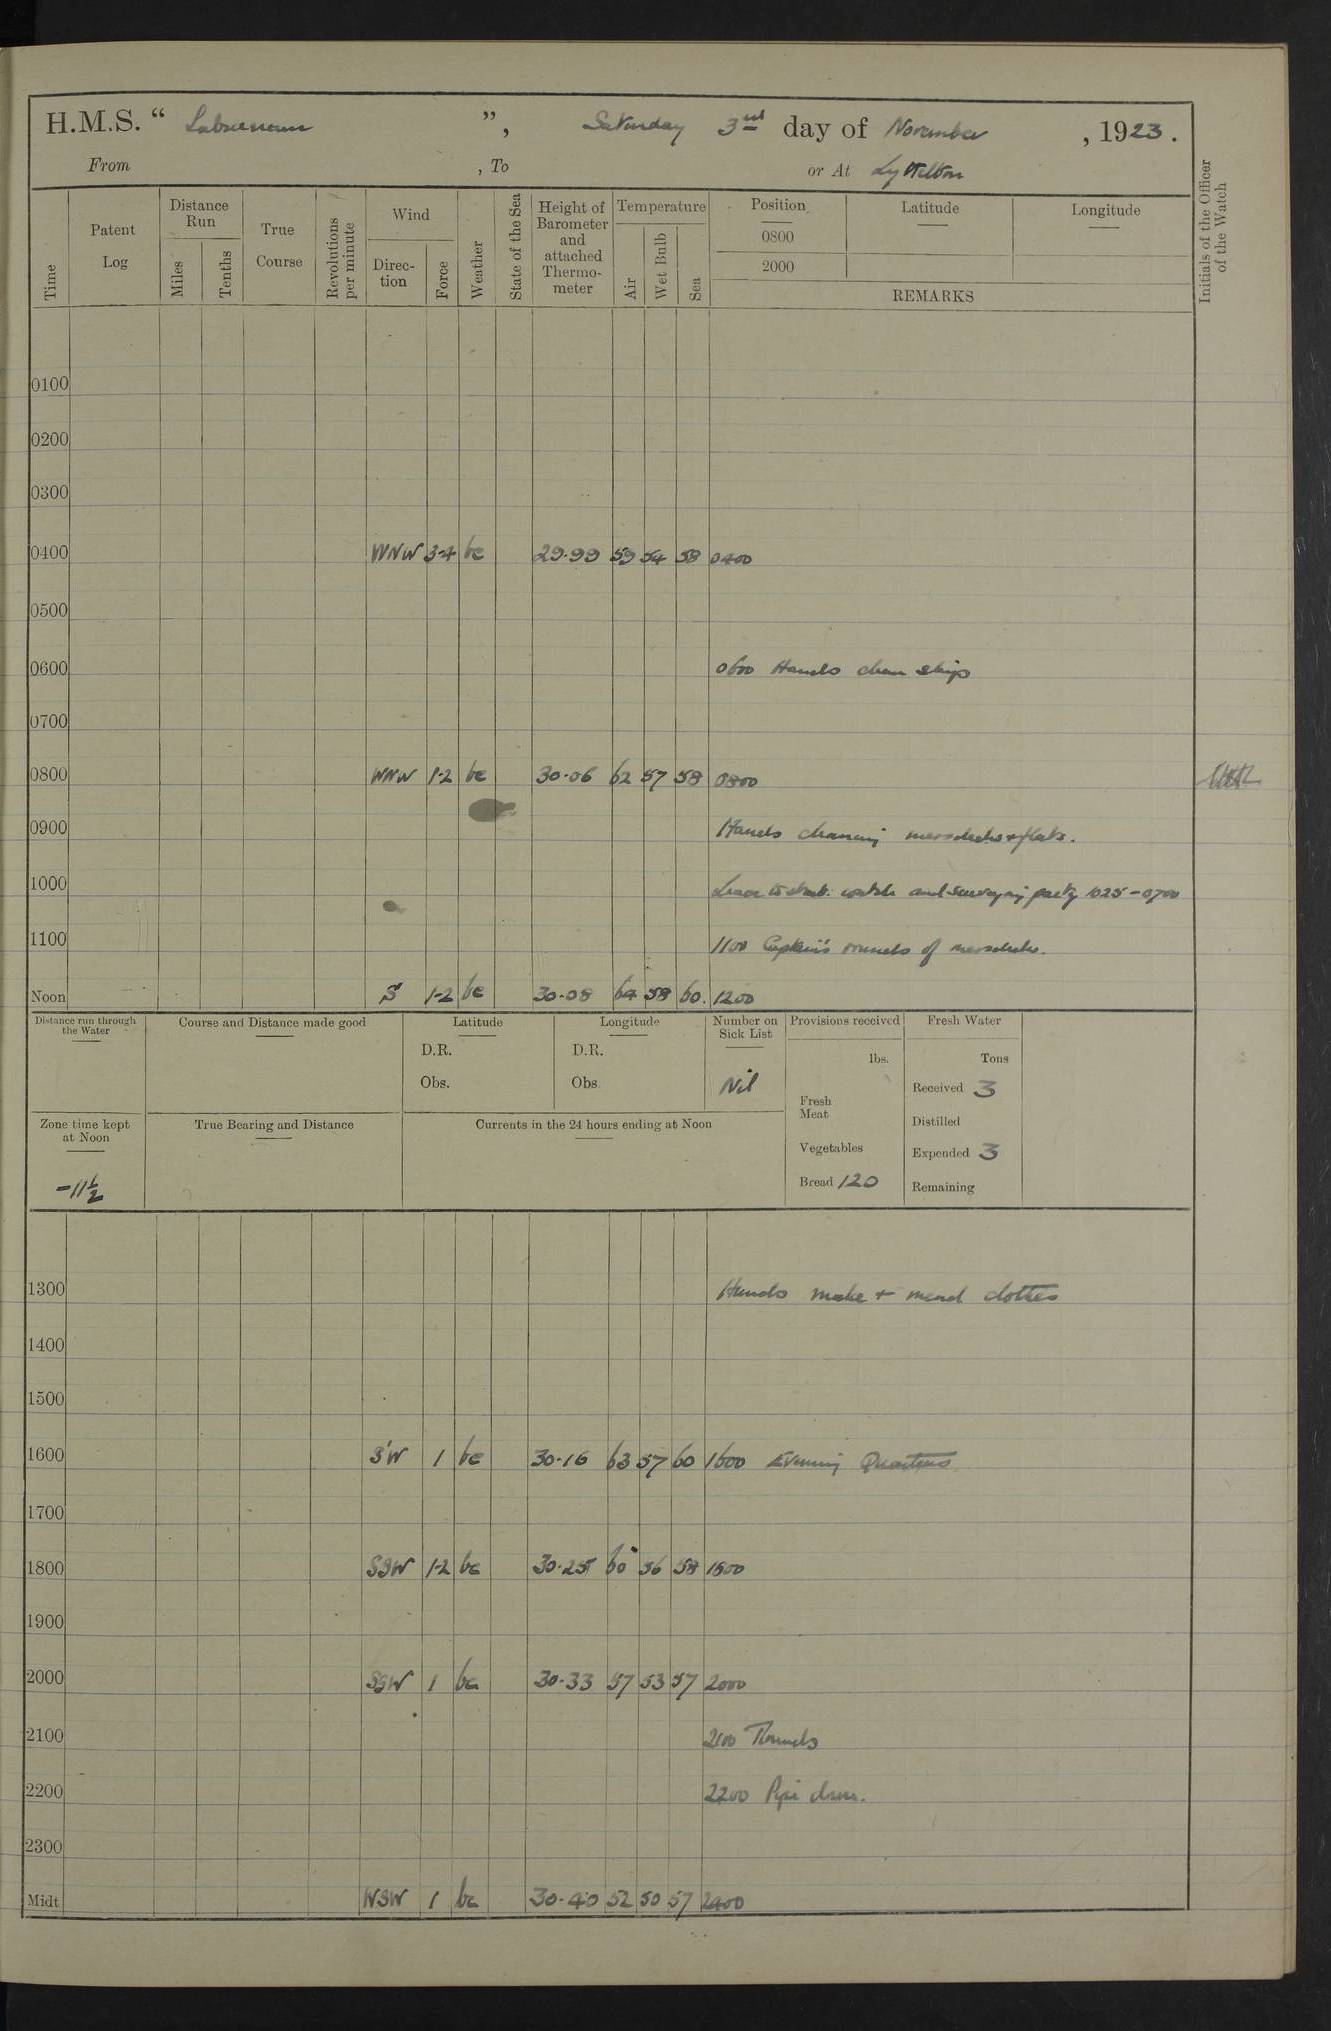 H.M.S. “ Laburnum ”, Saturday 3rd day of November , 1923.
From , To or At Lyttelton
Time
Patent Log
Distance Run
Miles
Tenths
True Course
Revolutions per minute
Wind
Direc-tion
Force
Weather
State of the Sea
Height of Barometer and attached Thermo-meter
Temperature
Air
Wet Bulb
Sea
Position
0800
2000
Latitude
Longitude
REMARKS
Initials of the Officer of the Watch
0100
0200
0300
0400 WNW 3-4 bc 29·99 59 54 58 0400
0500
0600 0600 Hands clean ship
0700
0800 WNW 1-2 bc 30·06 62 57 58 0800
0900 Hands cleaning messdecks & flats.
1000 Leave to starb. watch and surveying party 1025-0700
1100 1100 Captain's rounds of messdecks.
Noon S 1-2 bc 30·08 64 58 60. 1200
Distance run through the Water
Course and Distance made good
Latitude
D.R.
Obs.
Longitude
D.R.
Obs.
Number on Sick List
Nil
Provisions received
lbs.
Fresh Meat
Vegetables
Bread 120
Fresh Water
Tons
Received 3
Distilled
Expended 3
Remaining
Zone time kept at Noon
-11½
True Bearing and Distance
Currents in the 24 hours ending at Noon
1300 Hands make + mend clothes
1400
1500
1600 S'W 1 bc 30·16 63 57 60 1600 Evening Quarters
1700
1800 SSW 1-2 bc 30·25 60 56 58 1800
1900
2000 SSW 1 bc 30·33 57 53 57 2000
2100 2100 Rounds
2200 2200 Pipe down.
2300
Midt WSW 1 bc 30·40 52 50 57 2400